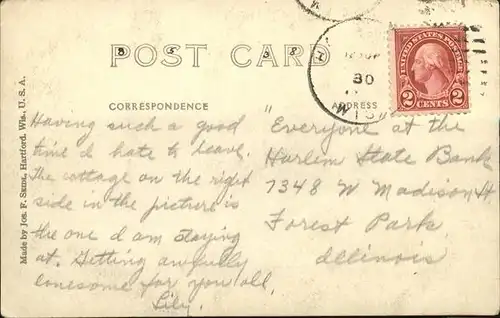 POST CARD
CORRESPONDENCE
ADDRESS
30
WIS
UNITED STATES POSTAGE
2 CENTS 2
Made by Jos. F. Sama, Hartford, Wis., U. S. A.
Having such a good
time I hate to leave.
The cottage on the right
side in the picture is
the one I am staying
at. Getting awfully
lonesome for you all.
Lily.
"Everyone at the
Harlem State Bank
7348 W Madison St
Forest Park
Illinois